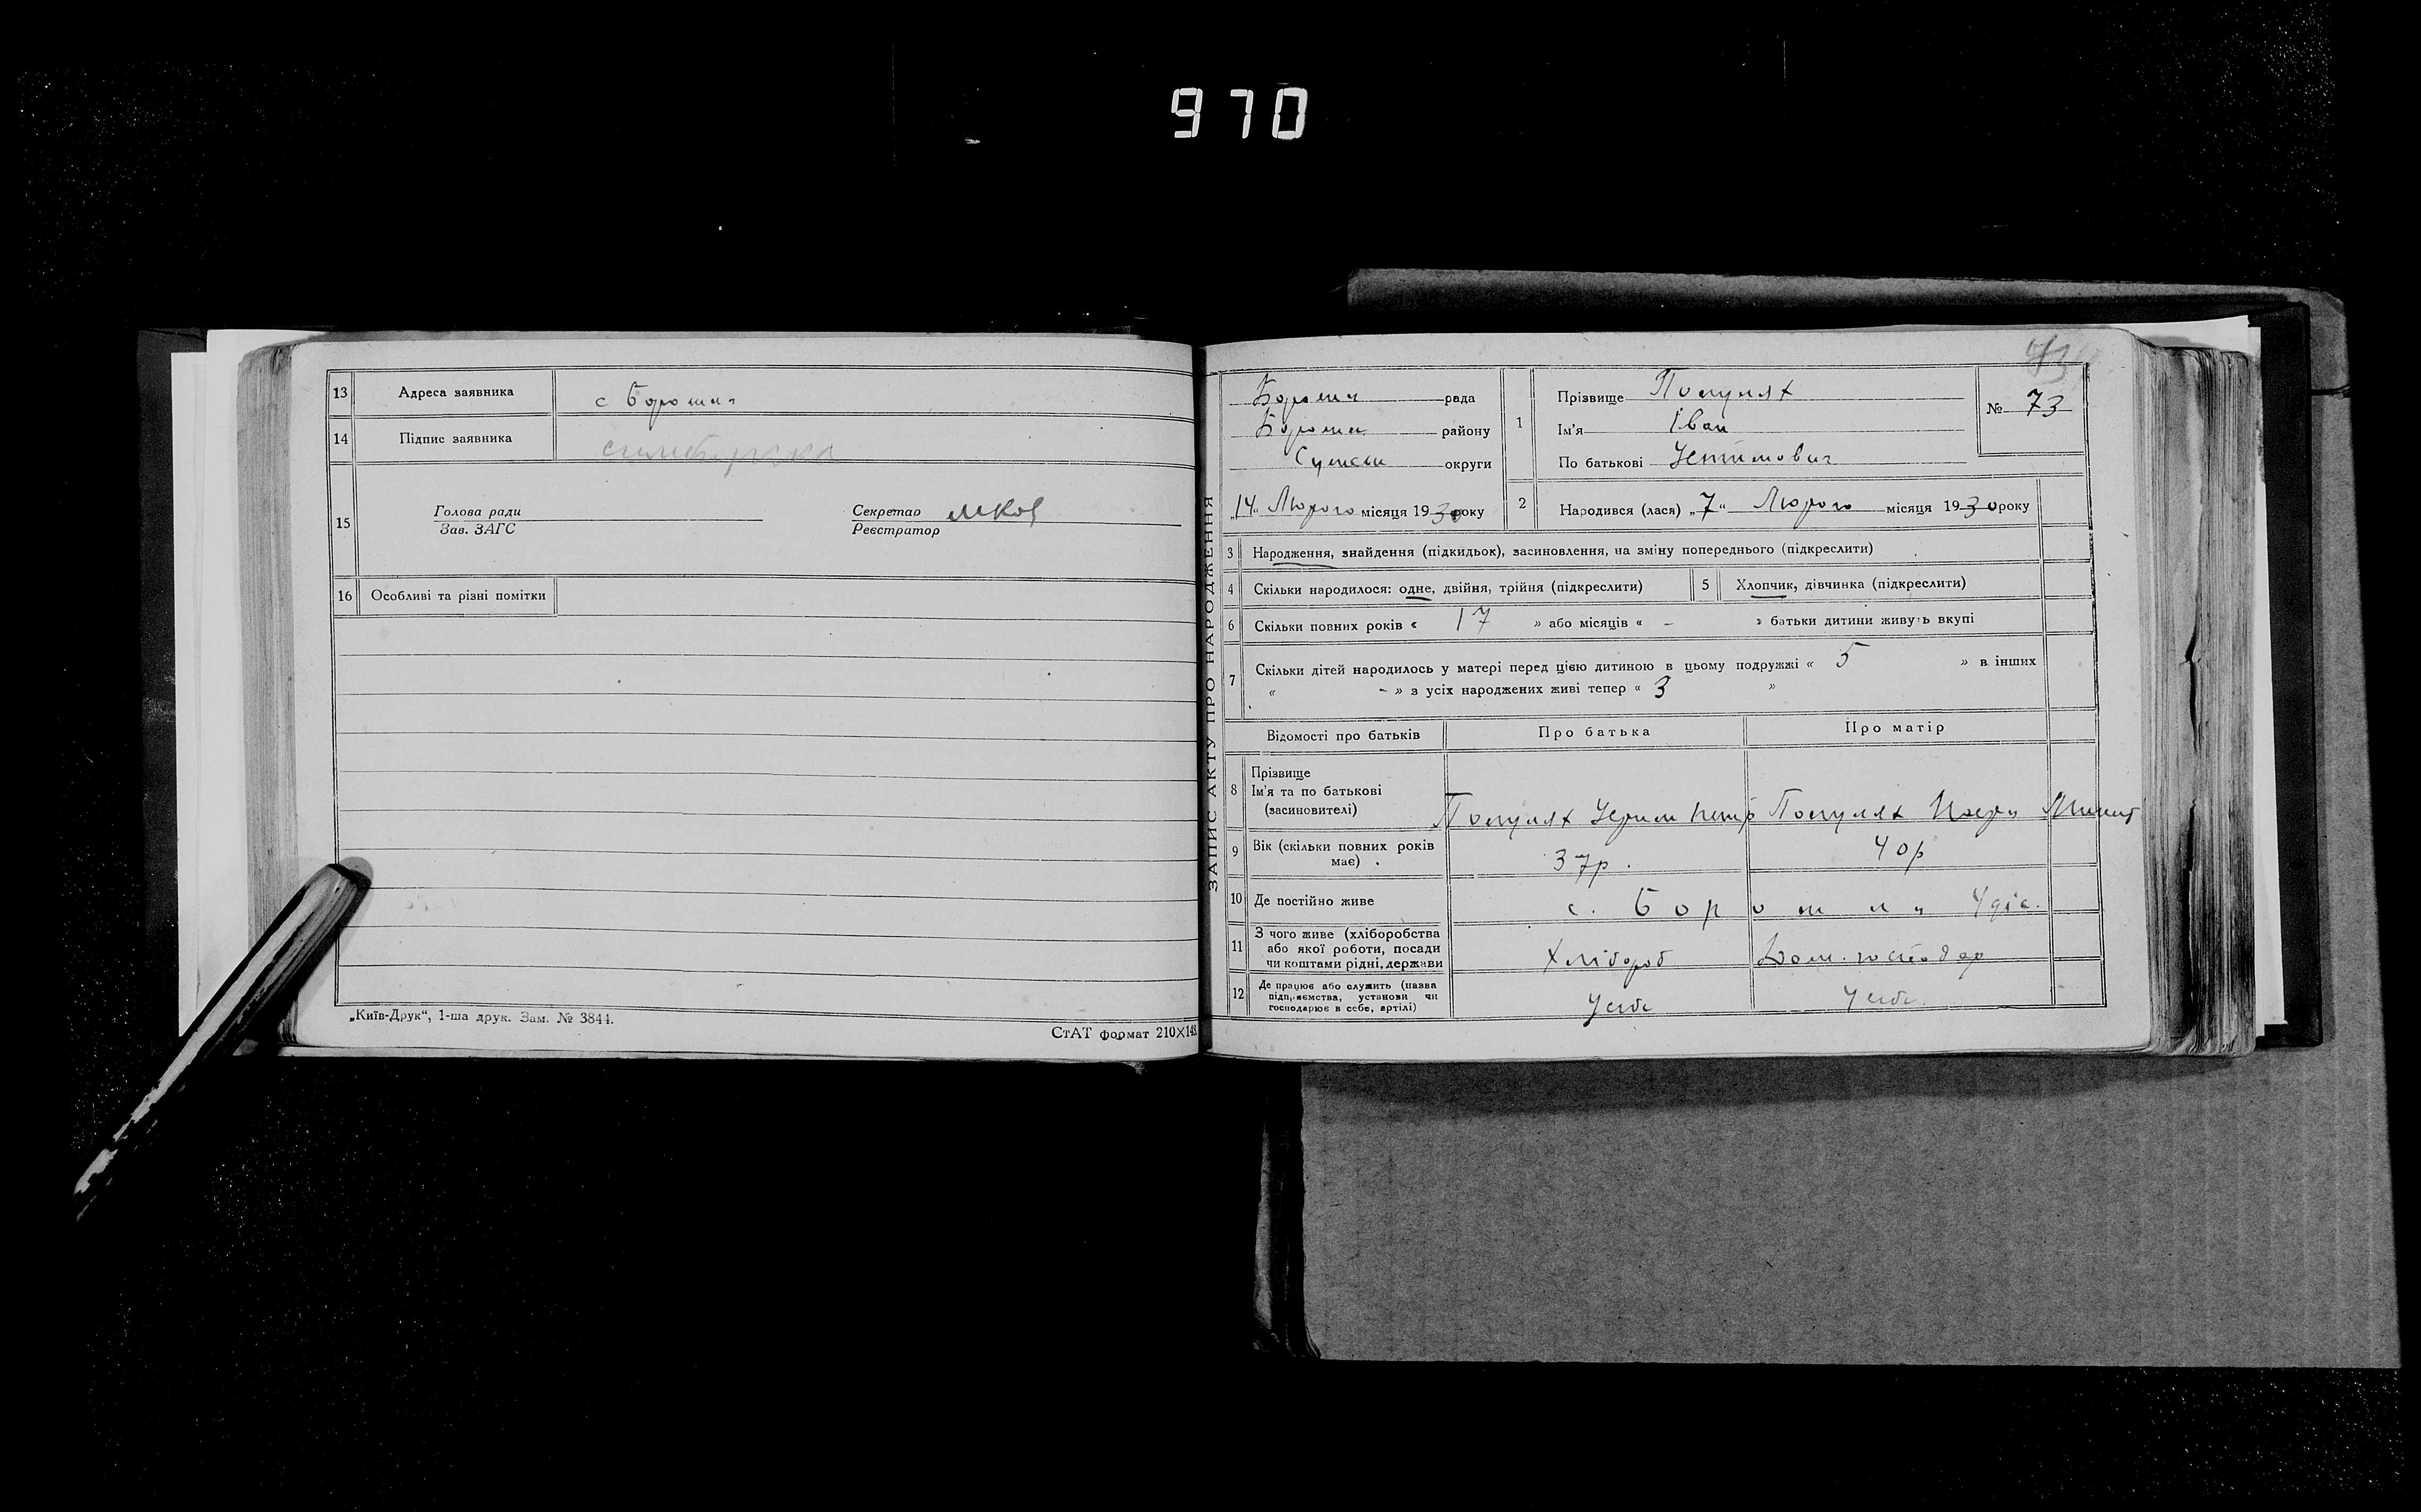 970
13 Адреса заявника с Боромля
14 Підпис заявника
15 Голова ради Секретар
Зав. ЗАГС Реєстратор
16 Особливі та різні помітки
„Київ-Друк“, 1-ша друк. Зам. № 3844.
СтАТ формат 210X148
ЗАПИС АКТУ ПРО НАРОДЖЕННЯ
Боромля рада
Боромля району
Сумськ округи
„14“ Лютого місяця 1930 року
1 Прізвище
Ім'я Іван
По батькові Устимович
№ 73
2 Народився (лася) „7“ Лютого місяця 1930 року
3 Народження, знайдення (підкидьок), засиновлення, на зміну попереднього (підкреслити)
4 Скільки народилося: одне, двійня, трійня (підкреслити) 5 Хлопчик, дівчинка (підкреслити)
6 Скільки повних років « 17 » або місяців « – » батьки дитини живуть вкупі
7 Скільки дітей народилось у матері перед цією дитиною в цьому подружжі « 5 » в інших
« – » з усіх народжених живі тепер « 3 »
Відомості про батьків Про батька Про матір
8 Прізвище
Ім'я та по батькові
(засиновителі)
9 Вік (скільки повних років має) 37р. 40р
10 Де постійно живе с. Боромля
11 З чого живе (хліборобства
або якої роботи, посади
чи коштами рідні, держави Хлібороб Дом. господар
12 Де працює або служить (назва
підприємства, установи чи
господарює в себе, артілі) У себе У себе.